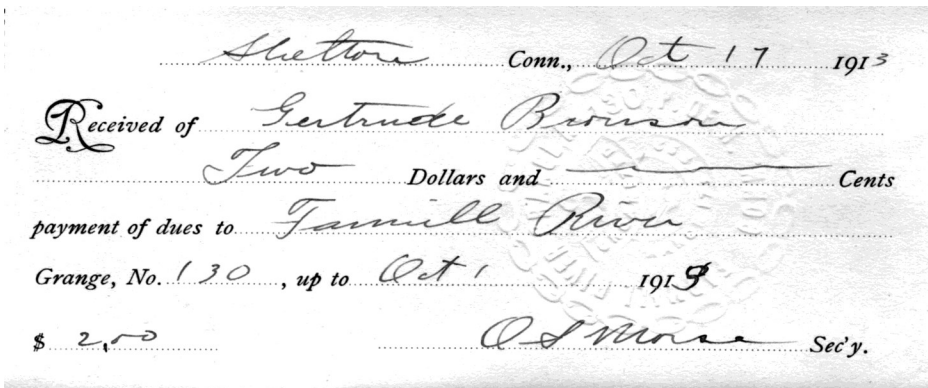 Shelton Conn., Oct 17 1913
Received of Gertrude Bronson
Two Dollars and — Cents
payment of dues to Farmill River
Grange, No. 130, up to Oct 1 191
$ 2,00 O S Morse Sec'y.